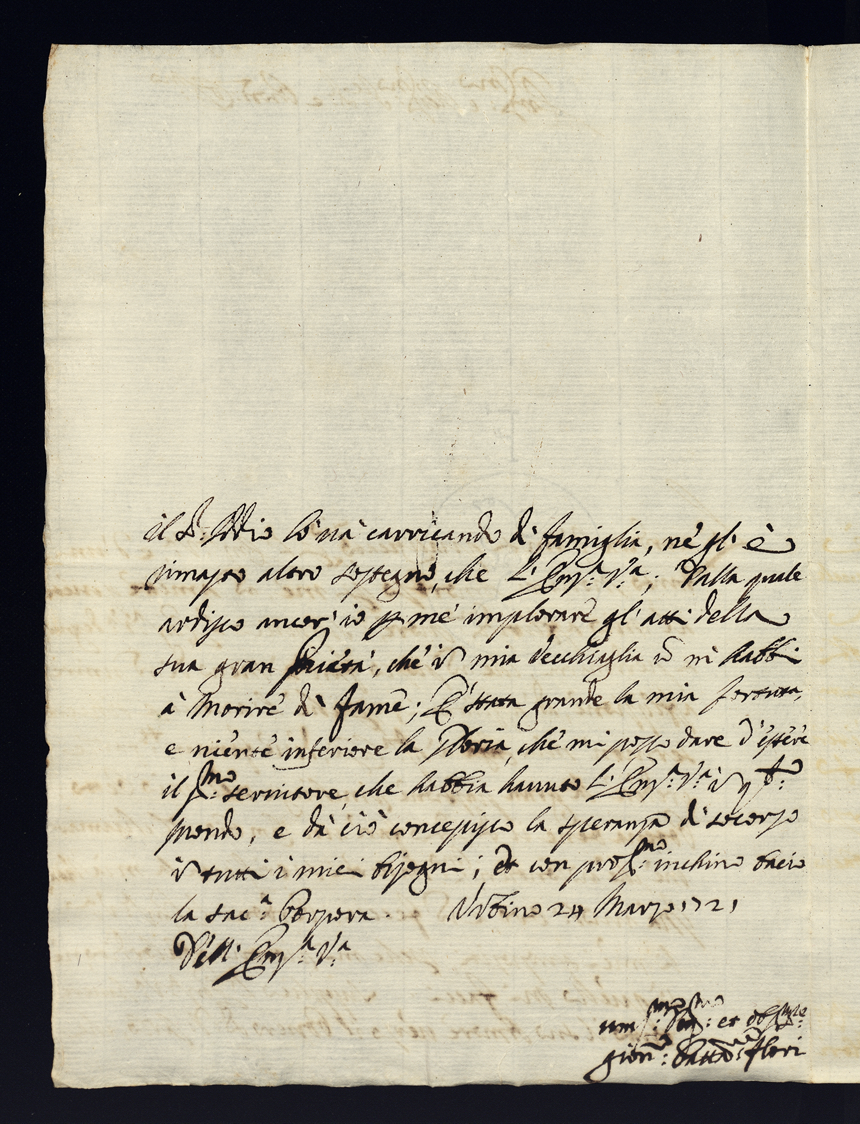 il S.r Iddio lo uà carricando di famiglia, ne gl' è
rimasto altro sostegno, che l'Em.a V.a; dalla quale
ardisco ancor' io p me implorare gl' atti della
sua gran Pietà, che in mia vecchiaglia nō m habbi
à morire di fame; E stata grande la mia fortuna,
e niente inferiore la gloria, che mi posso dare d'essere
il p.mo seruitore, che habbia hauuto l'Em.a V.a in q.to
mondo, e da ciò concepisco la speranza di socorso
in tutti i miei bisogni; et con prof.mo inchino bacio
la sac.a Porpora. Urbino 24 Marzo 1721
Dell' Em.a V.a
um.mo et
Giōn: Batt Flori